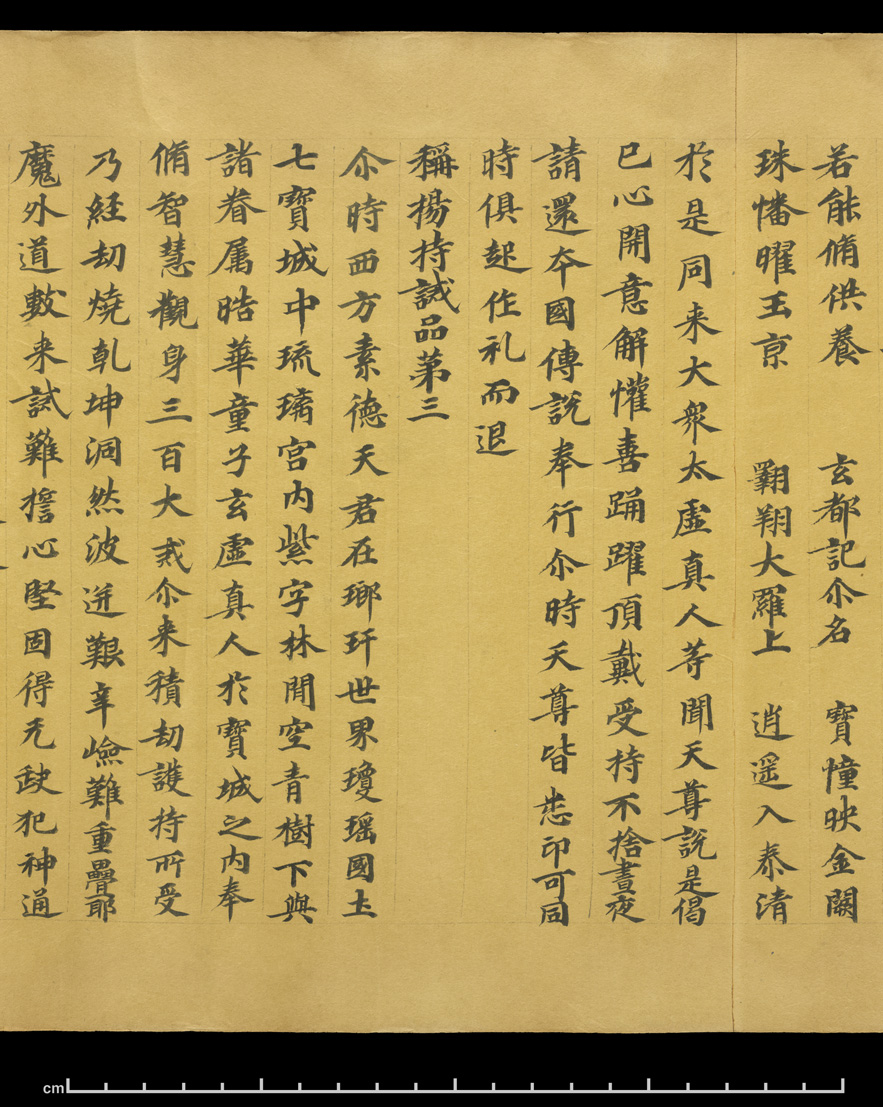 若能脩供養 玄都記尒名 寶憧映金闕
珠幡曜玉京 翱翔大羅上 逍遥入泰清
於是同来大衆太虛真人等聞天尊說是偈
已心開意解懽喜踊躍頂戴受持不捨晝夜
請還夲國傳說奉行尒時天尊皆悉印可同
時俱起作礼而退
稱揚持誡品第三
尒時西方素德天君在瑯玕世界瓊瑶國土
七寶城中琉璃宮內紫字林間空青樹下與
諸眷属晧華童子玄虛真人於寶城之內奉
脩智慧觀身三百大戒尒来積劫護持所受
乃經劫燒乹坤洞然波迸艱辛嶮難重疊耶
魔外道數来試難擔心堅固得无缺犯神通
cm